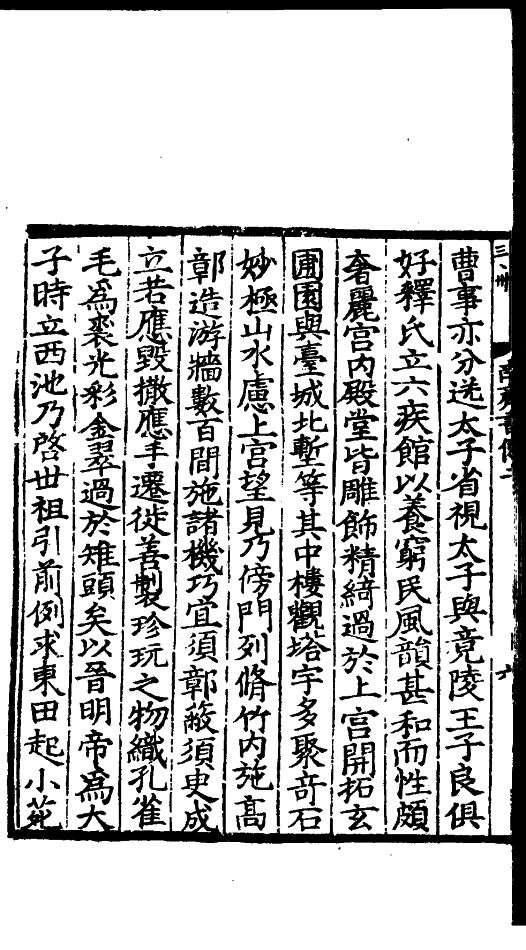 曹事亦分送太子省視太子與竟陵王子良俱
好釋氏立六疾館以養窮民風韻甚和而性頗
奢麗宫内殿堂皆雕飾精綺過於上宫開拓玄
圃園與臺城北塹等其中樓觀塔宇多聚奇石
妙極山水慮上宫望見乃傍門列脩竹内施高
鄣造游牆數百間施諸機巧宜須鄣蔽須臾成
立若應毀撤應手遷徙善製珍玩之物織孔雀
毛爲裘光彩金翠過於雉頭矣以晉明帝爲太
子時立西池乃啓丗祖引前例求東田起小苑